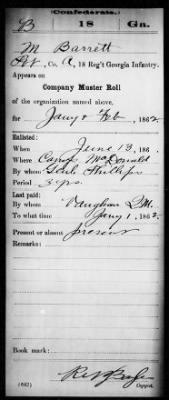 (Confederate.)
B 18 Ga.
M Barrett
Pvt, Co. A, 18 Reg't Georgia Infantry.
Appears on
Company Muster Roll
of the organization named above,
for Jany & Feb, 1862.
Enlisted:
When June 13, 186
Where Camp McDonald
By whom Genl Phillips
Period 3 yrs.
Last paid:
By whom Vaughan Q.M.
To what time Jany 1, 1862.
Present or absent present
Remarks:
Book mark:
(642)
Copyist.